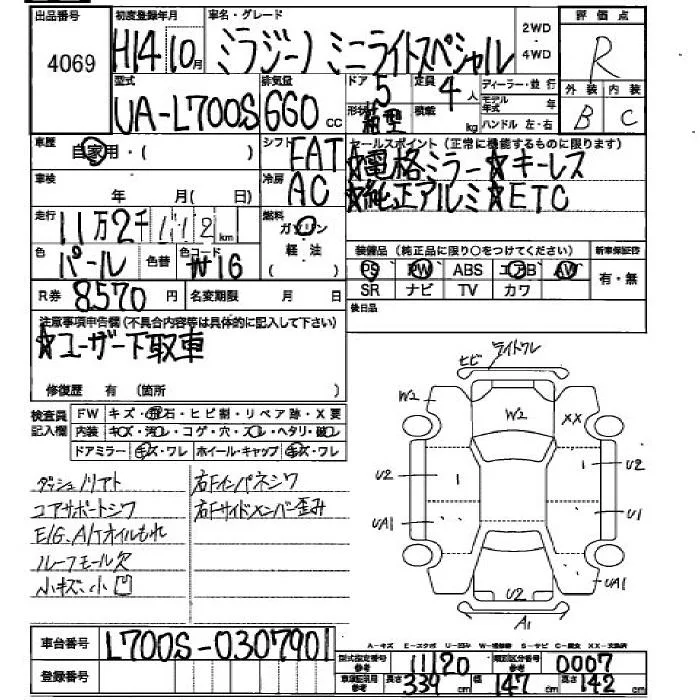 出品番号 初度登録年月 車名・グレード 評価点
4069 H14 10月 ミラジーノ ミニライトスペシャル 2WD・4WD R
型式 排気量 ドア 定員 ディーラー・並行 外装 内装
UA-L700S 660cc 5 4人 モデル年式 年 B C
形状 箱型 積載 kg ハンドル 左・右
車歴 自家用・( ) シフト FAT セールスポイント(正常に機能するものに限ります)
☆電格ミラー☆キーレス
車検 年 月( 日) 冷房 AC ☆純正アルミ☆ETC
走行 11万2千 1112km 燃料 ガソリン 軽油 ( )
装備品(純正品に限り○をつけてください) 新車保証書
色 パール 色替 色コード W16 PS PW ABS エアB AW 有・無
SR ナビ TV カワ
R券 8570円 名変期限 月 日 後日品
注意事項申告欄(不具合内容等は具体的に記入して下さい)
☆ユーザー下取車
修復歴 有 (箇所 )
検査員記入欄 FW キズ・飛石・ヒビ割・リペア跡・X要
内装 キズ・汚レ・コゲ・穴・スレ・ヘタリ・破レ
ドアミラー キズ・ワレ ホイール・キャップ キズ・ワレ
ダッシュノリアト 右Fインパネシワ
コアサポートシワ 右Fサイドメンバー歪み
E/G、A/Tオイルもれ
ルーフモール欠
小キズ・小凹
ヒビ ライトワレ
W2 W2 XX
U2 1 1 U2
UA1 U1
UA1
U2
A1
A-キズ E-エクボ U-凹み W-補修跡 S-サビ C-腐食 XX-交換済
車台番号 L700S-0307901
型式指定番号 参考 1120 類別区分番号 参考 0007
登録番号 車検証記載 参考 長さ 339cm 幅 147cm 高さ 142cm